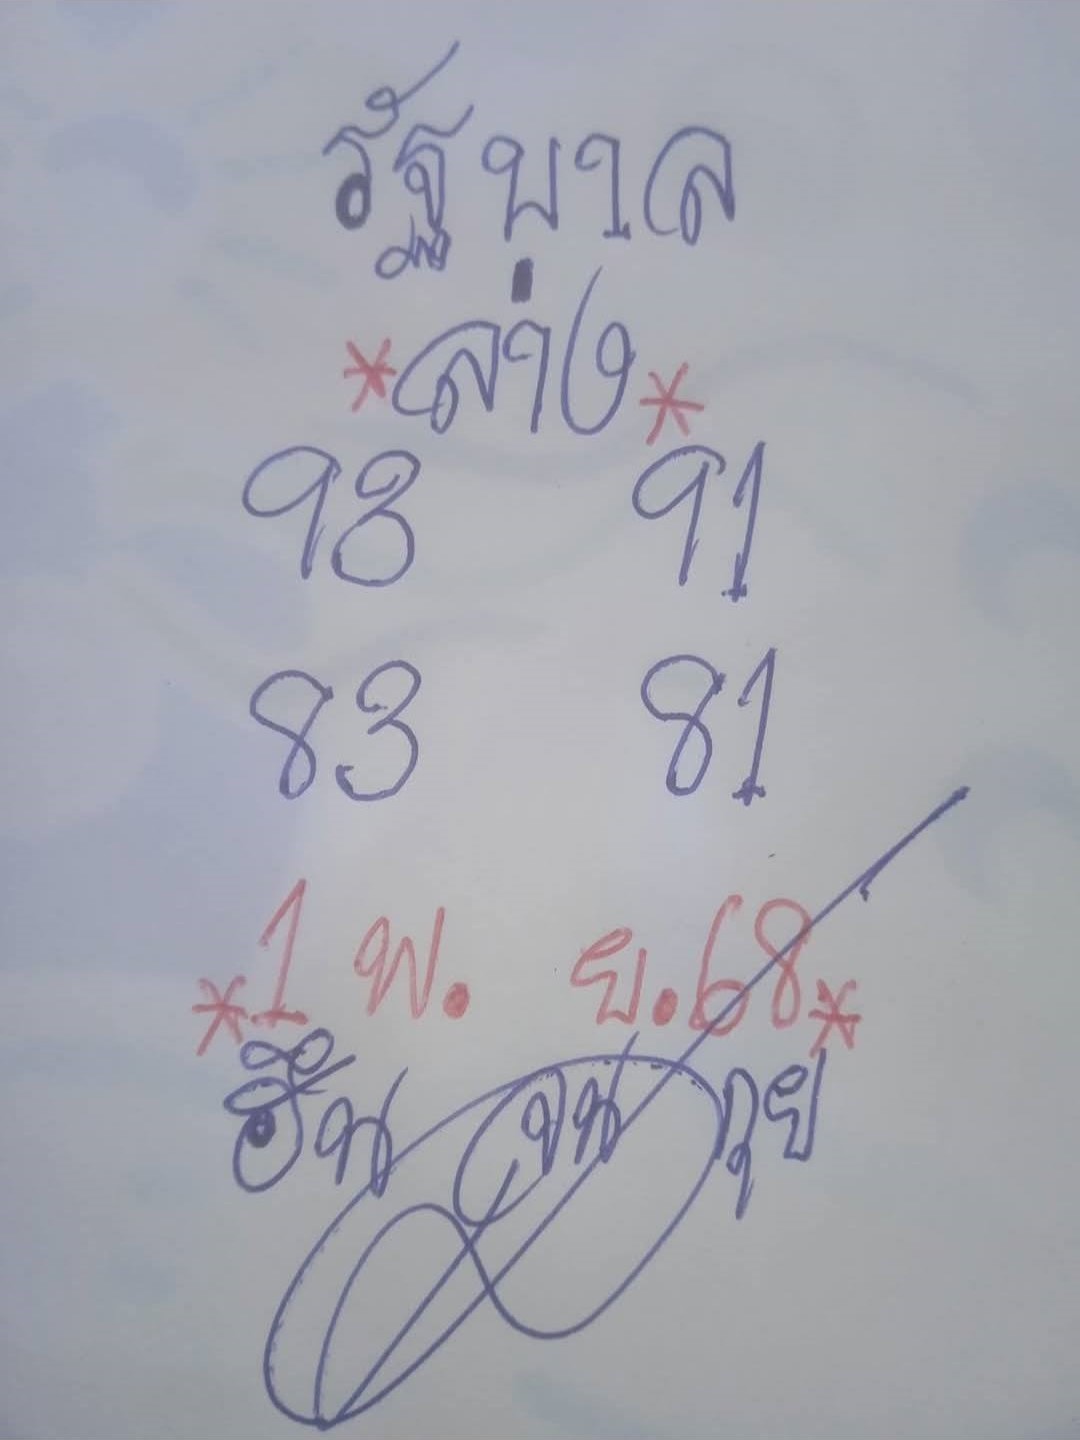 รัฐบาล
*ล่าง*
93 91
83 81
*1 พ. ย.68*
กุย